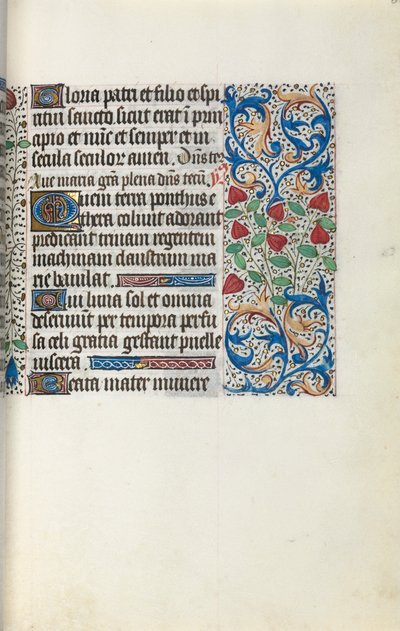 Gloria patri et filio et spi
ritui sancto sicut erat i prin
cipio et nuc et semper et in
secula seculor amen. Dns ter
Aue maria gra plena dns tecu
Quem terra ponthus e
thera colunt adorant
predicant trinam regentem
machinam claustrum ma
rie baiulat
Cui luna sol et omnia
deseruiunt per tempora perfu
sa celi gratia gestant puelle
uiscera
Beata mater munere